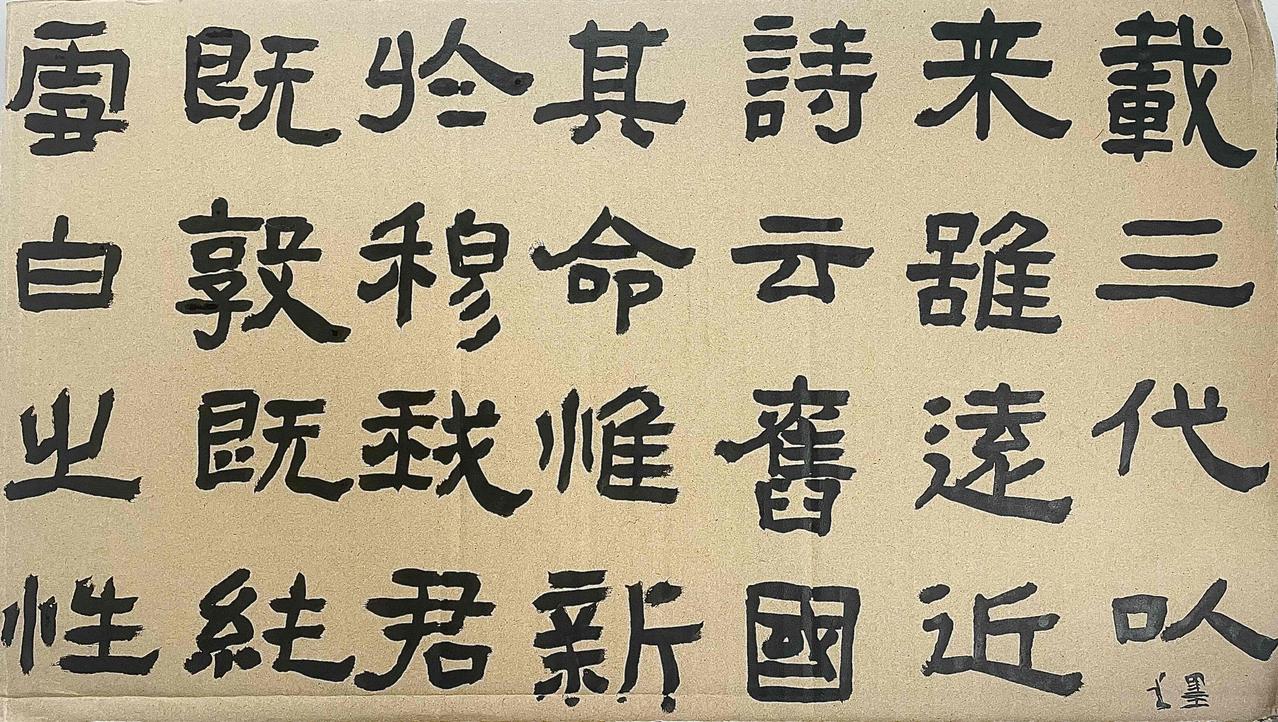 載三代以
来雖遠近
詩云舊國
其命惟新
於穆我君
既敦既純
雪白之性